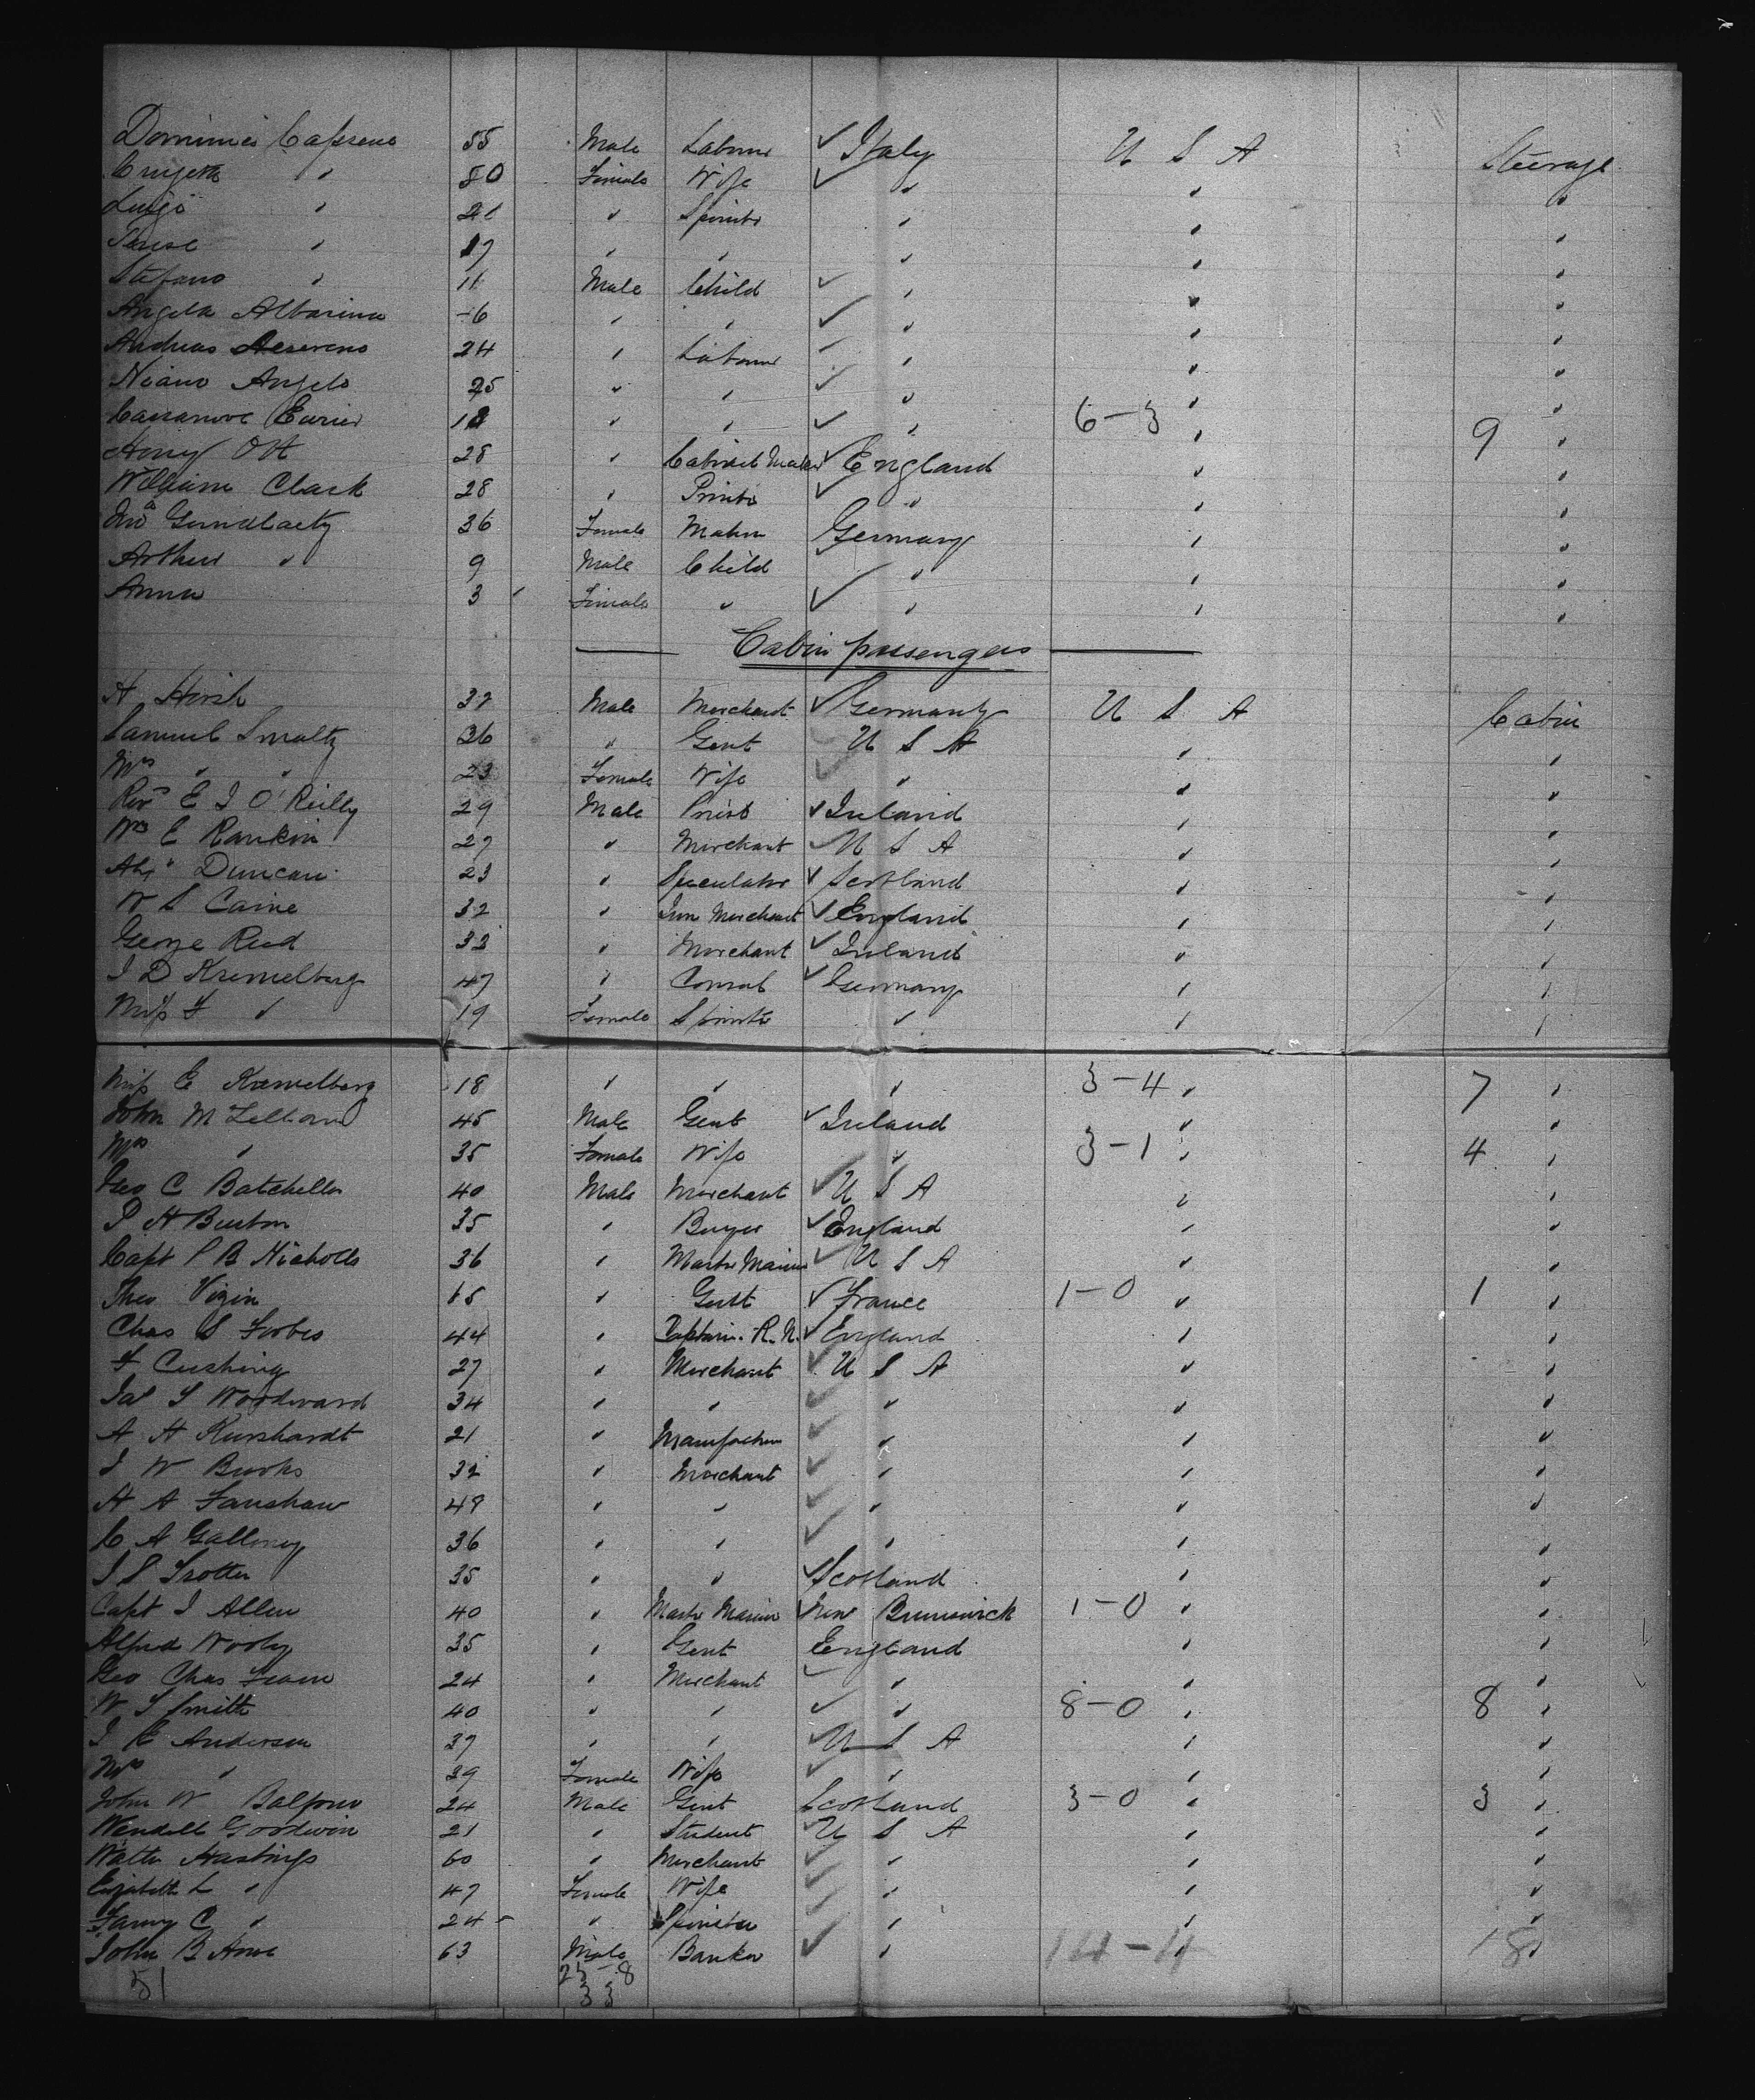 55 Male Labourer Italy U S A Steerage
" 50 Female Wife " " "
" 21 " Spinster " " "
" 17 " " " " "
Stefano " 11 Male Child " " "
Angela 6 " " " " "
Andreas 24 " Labourer " " "
Angelo 25 " " " " "
18 " " " 6-3 " 9 "
Henry Ott 28 " Cabinet Maker England " "
William Clark 28 " Printer " " "
36 Female Matron Germany " "
Arthur " 9 Male Child " " "
Anna 3 Female " " " "
Cabin passengers
H Hirsh 32 Male Merchant Germany U S A Cabin
Samuel Smaltz 36 " Gent U S A " "
Mrs " " 23 Female Wife " " "
Revd E J O'Reilly 29 Male Priest Ireland " "
Wm E Rankin 27 " Merchant U S A " "
Duncan 23 " Speculator Scotland " "
W S Caine 32 " Iron Merchant England " "
George Reed 33 " Merchant Ireland " "
J D Kremelberg 47 " Consul Germany " "
Miss F " 19 Female Spinster " " "
Miss E Kremelberg 18 " " " 3-4 " 7 "
John McLellan 45 Male Gent Ireland " "
Mrs " 35 Female Wife " 3-1 " 4 "
Geo C Batcheller 40 Male Merchant U S A " "
P H Burton 35 " Buyer England " "
Capt P B Nicholls 36 " Master Mariner U S A " "
Theo 65 " Gent France 1-0 " 1 "
Chas S Forbes 44 " Captain. R. N. England " "
F Cushing 27 " Merchant U S A " "
Jas S Woodward 34 " " " " "
A H Kunhardt 21 " " " "
J W Brooks 32 " Merchant " " "
H A Fanshaw 49 " " " " "
C A 36 " " " " "
J S Trotter 35 " " Scotland " "
Capt J Allen 40 " Master Mariner New Brunswick 1-0 " "
Alfred 35 " Gent England " "
Geo Chas 24 " Merchant " " "
W S Smith 40 " " " 8-0 " 8 "
J E Anderson 37 " " U S A " "
Mrs " 29 Female Wife " " "
John W Balfour 24 Male Gent Scotland 3-0 " 3 "
Wendell Goodwin 21 " Student U S A " "
Walter Hastings 60 " Merchant " " "
Elizabeth L " 47 Female Wife " " "
Fanny C " 24 " Spinster " " "
John B 63 Male Banker " 14-4 " 18 "
51 25-8
33